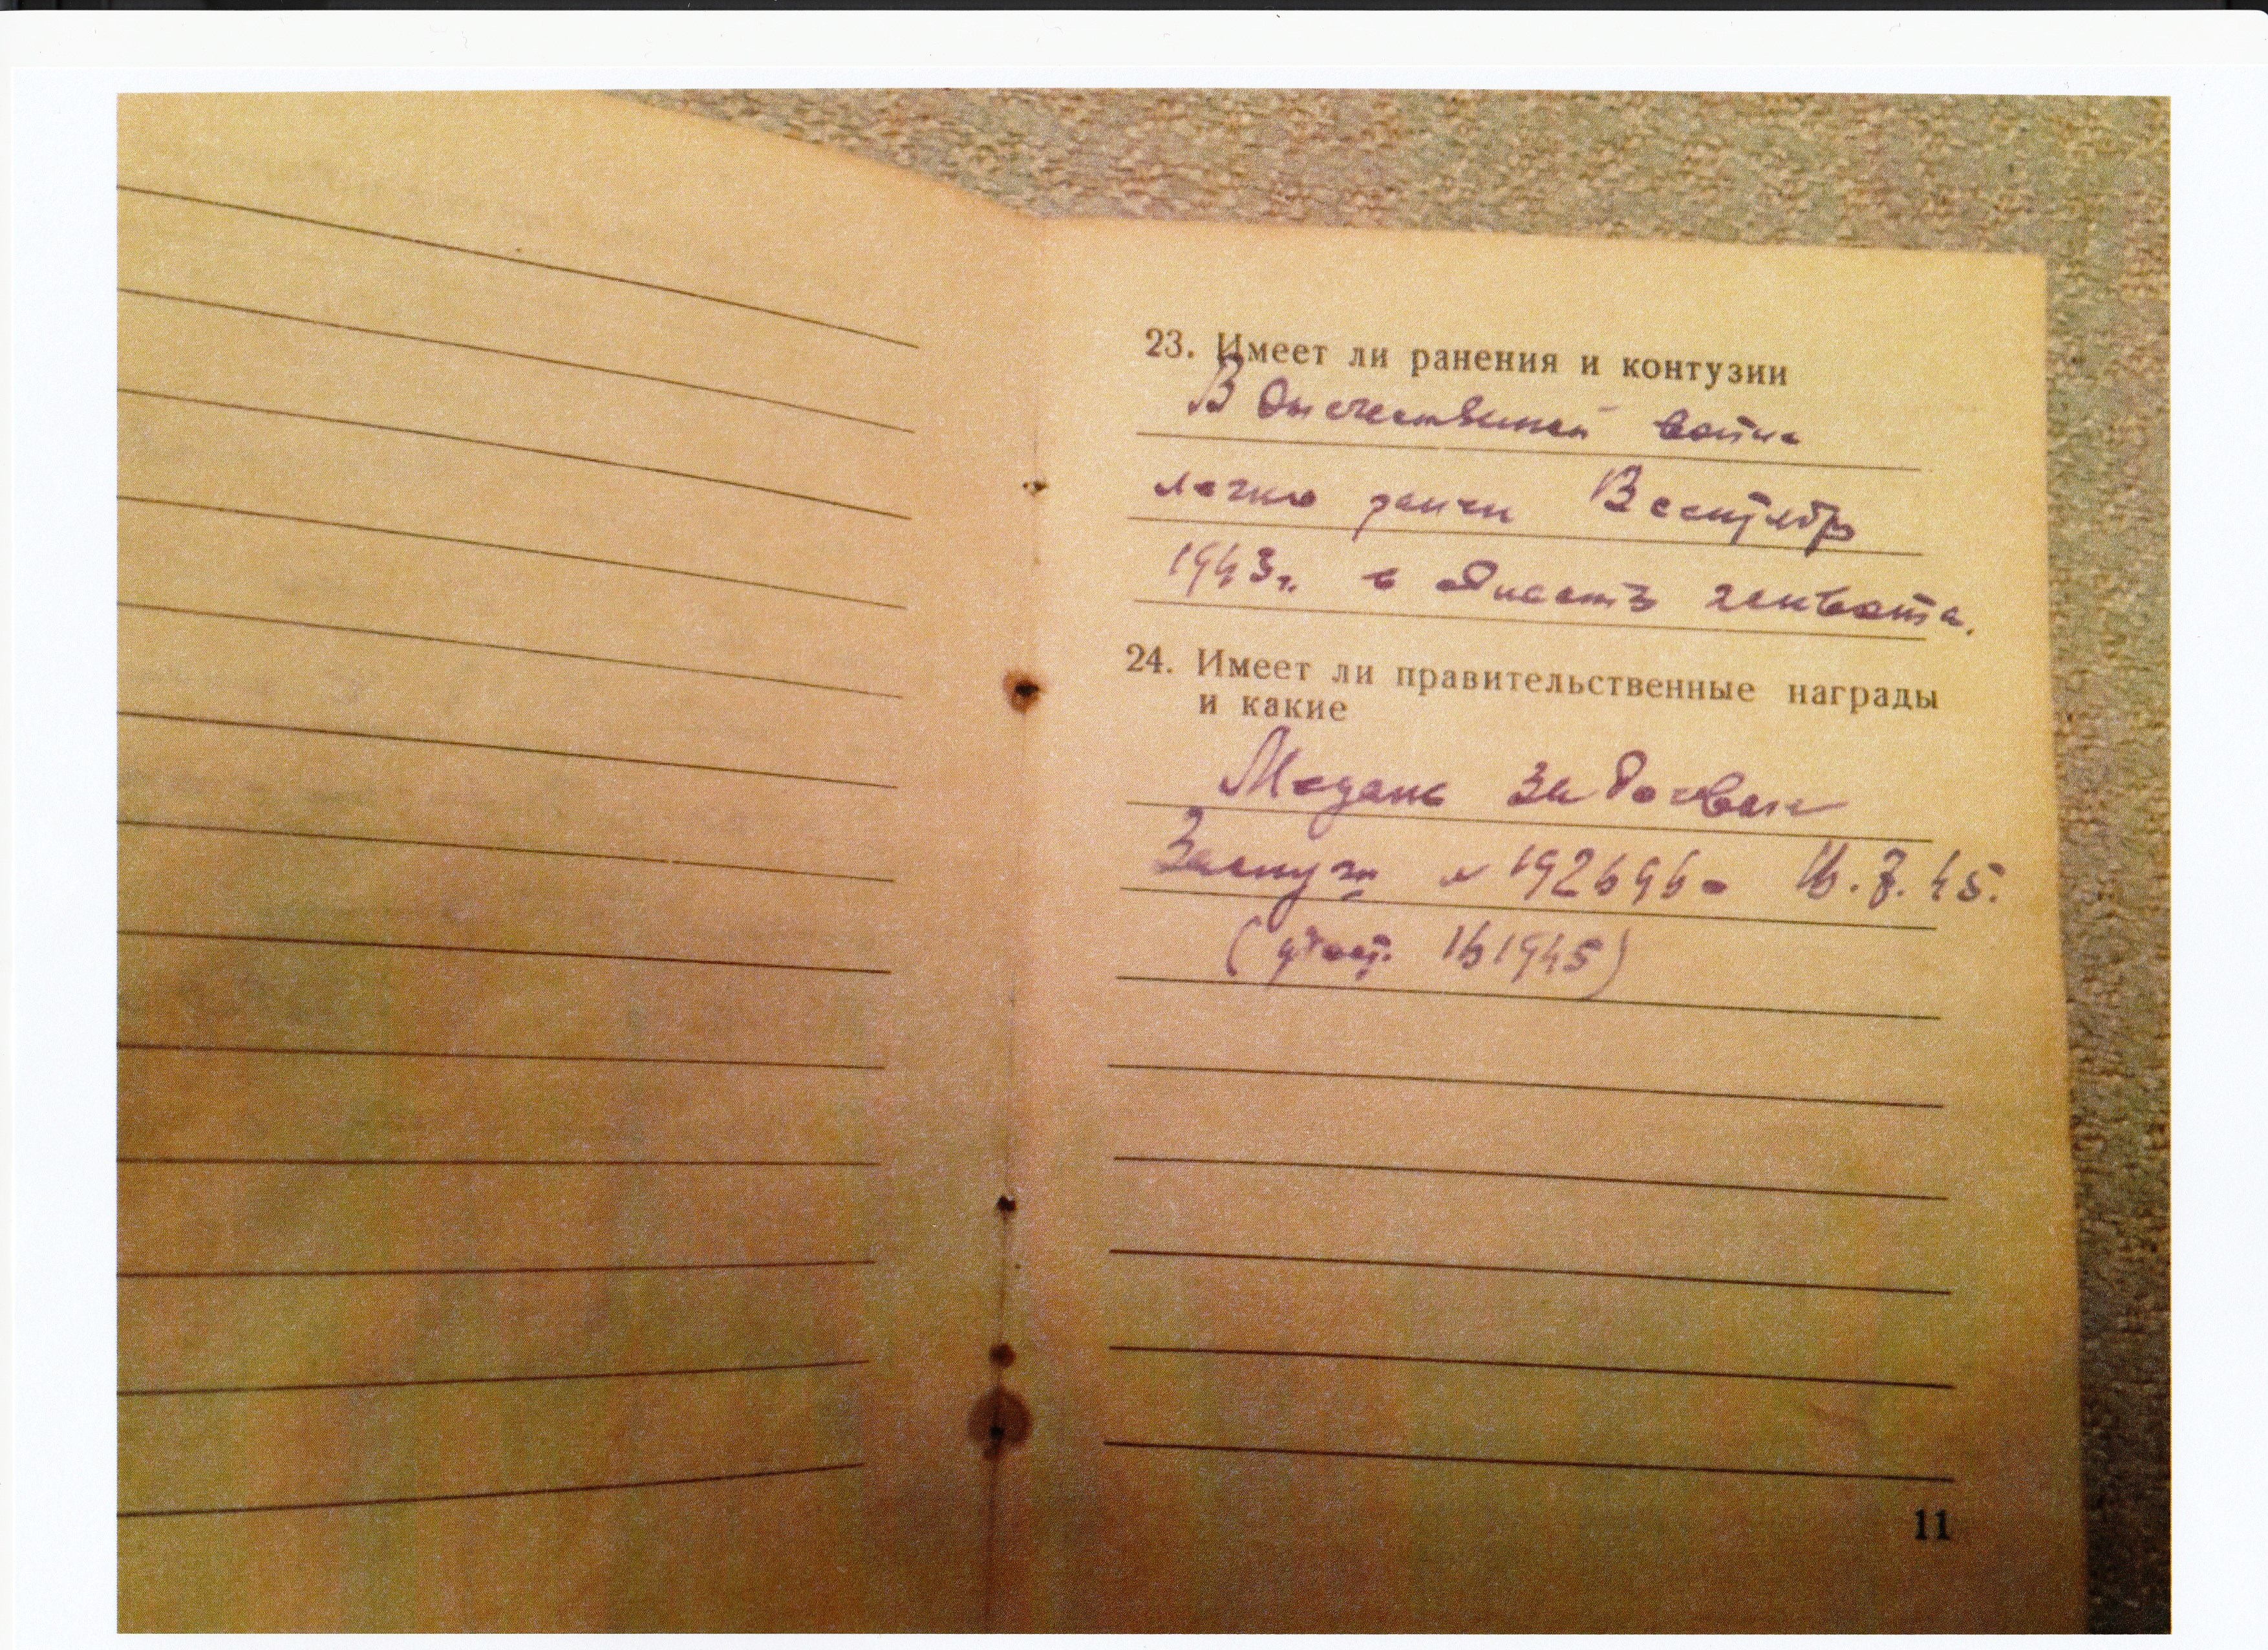 23. Имеет ли ранения и контузии
В Отечественной войне
легко ранен В сентябр
1943 г. в области живота.
24. Имеет ли правительственные награды
и какие
Медаль За боевые
Заслуги № 192696 16. 7. 45.
(удост. 161945)
11